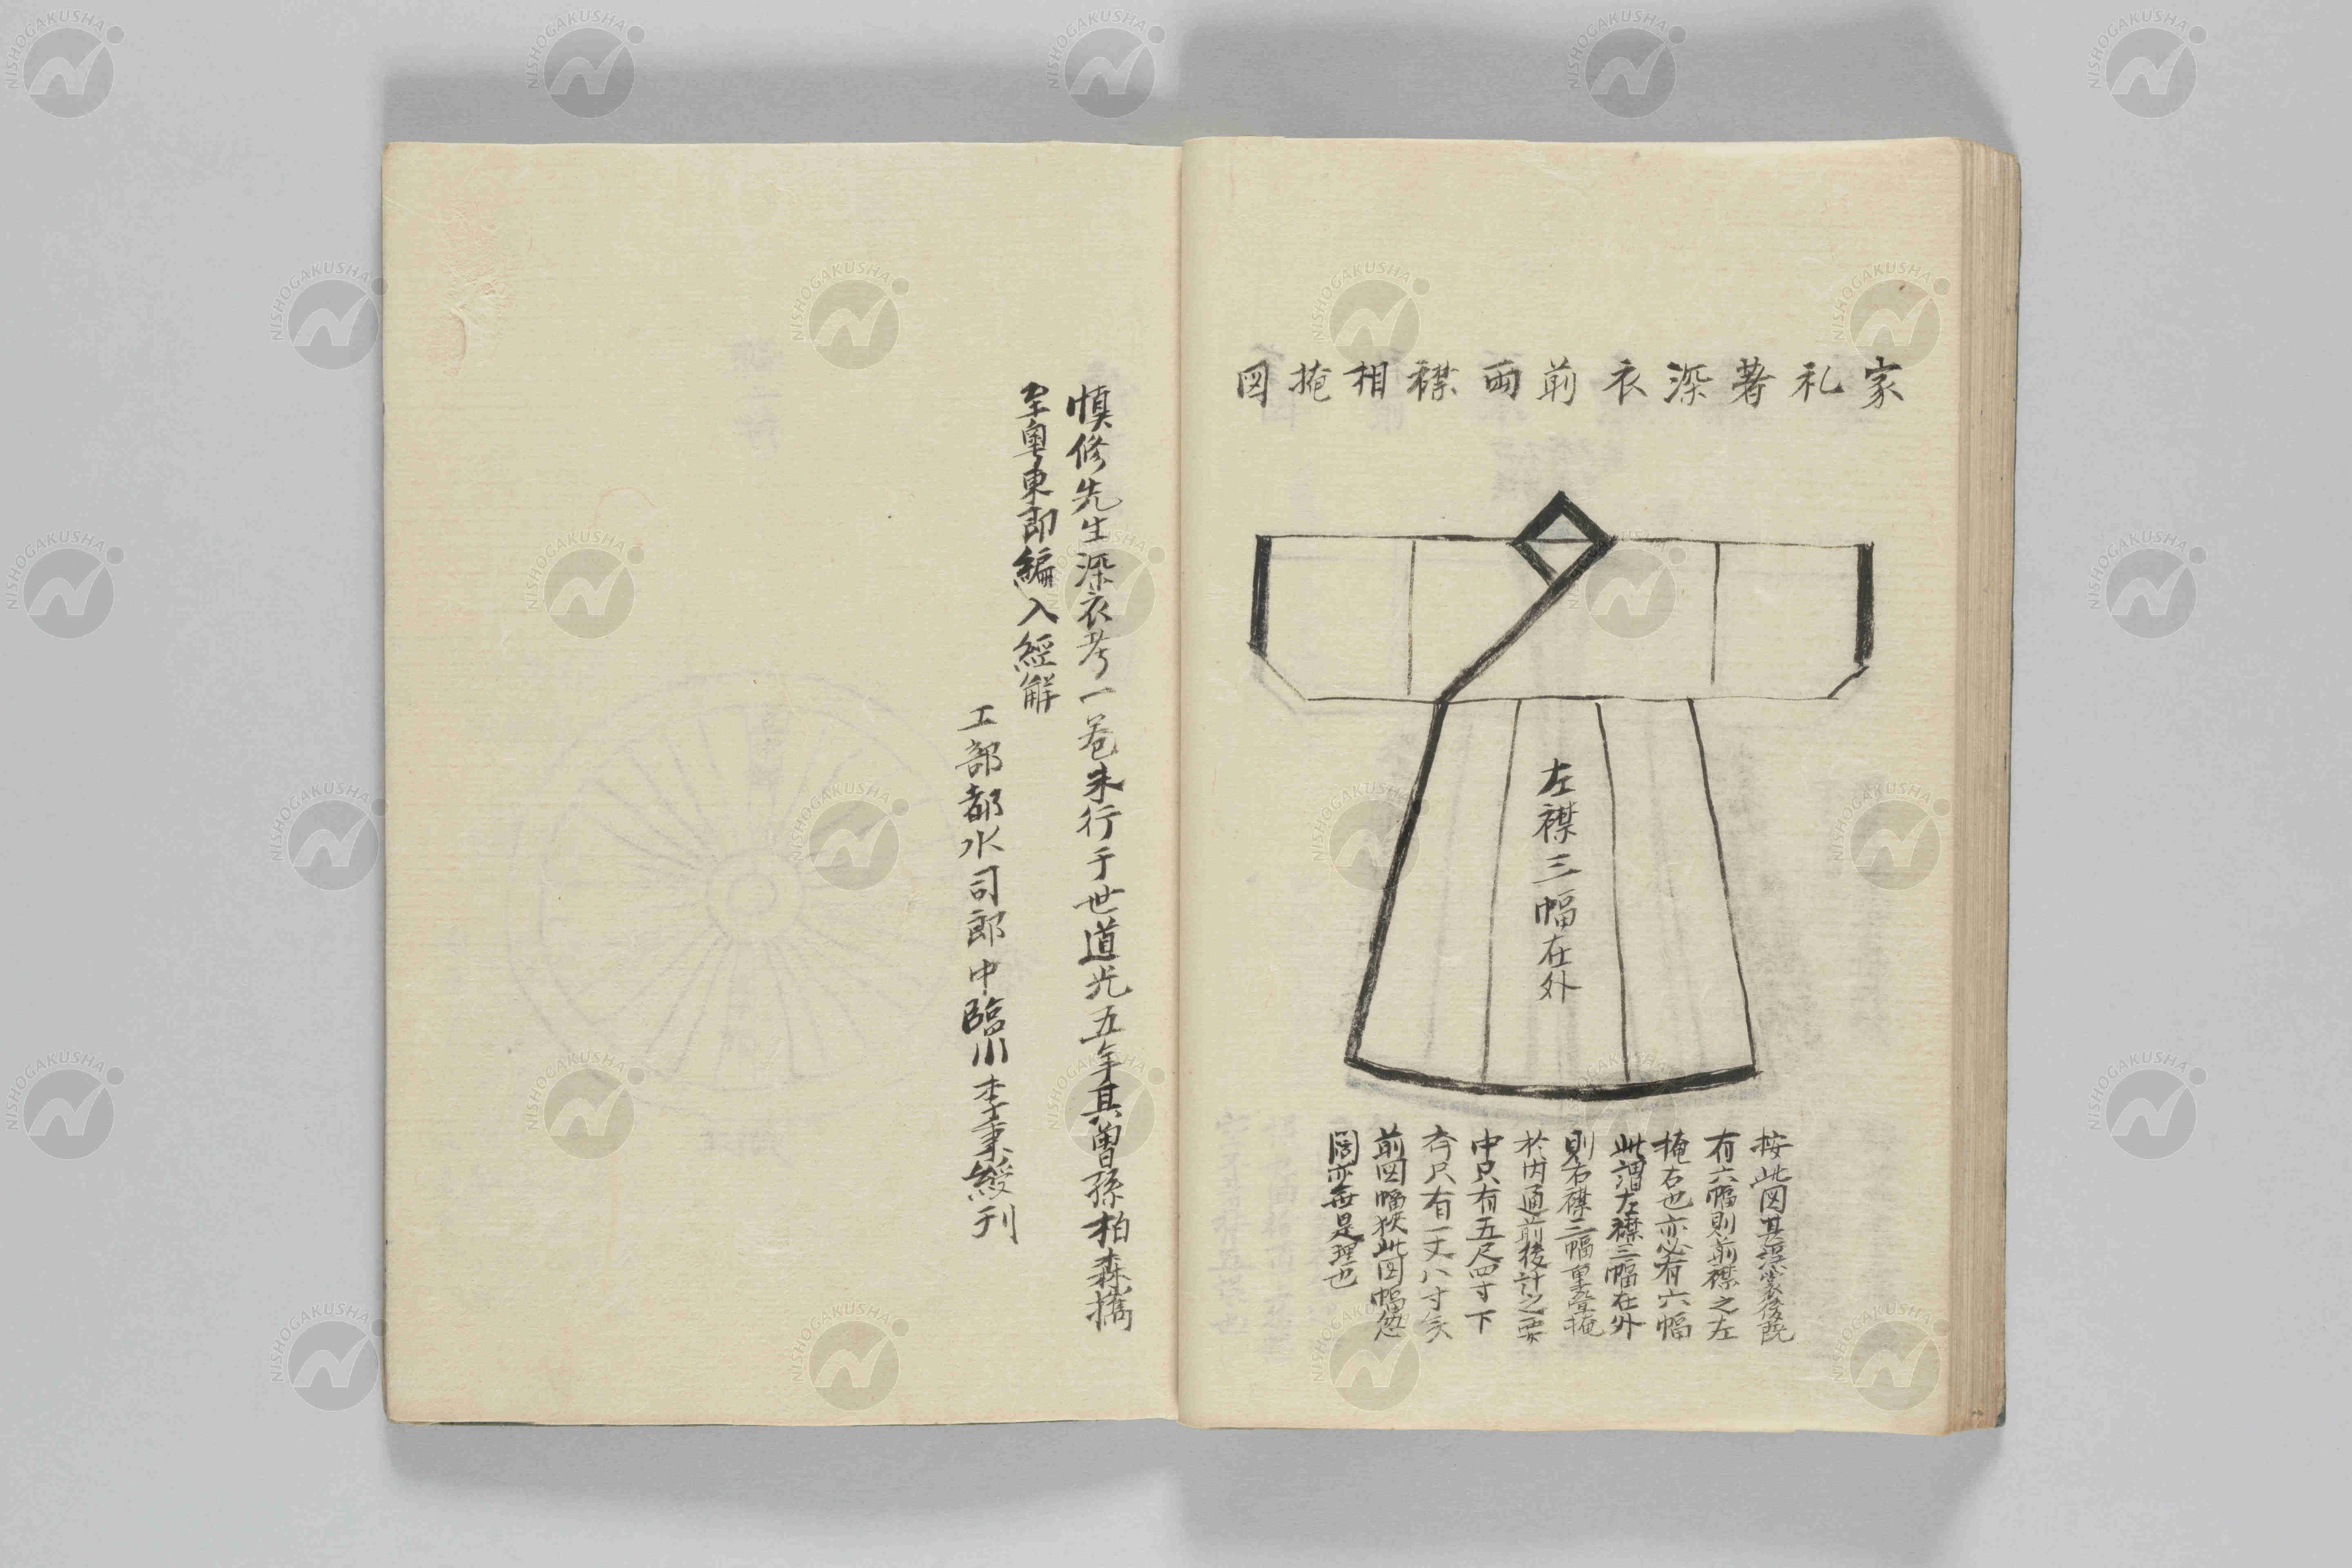 家礼著深衣前両襟相掩図
左襟三幅在外
按此図其深裳後既
有六幅則前襟之左
掩右也亦必有六幅
此謂左襟三幅在外
則右襟三幅畳掩
於内通前後計之要
中只有五尺四寸下
斉只有一丈八寸矣
前図幅狭此図幅
闊亦無是理也
慎修先生深衣考一巻未行于世道光五年其曽孫柏森携
至粤東即編入経解
工部都水司郎中臨川李秉綬刊
NISHOGAKUSHA